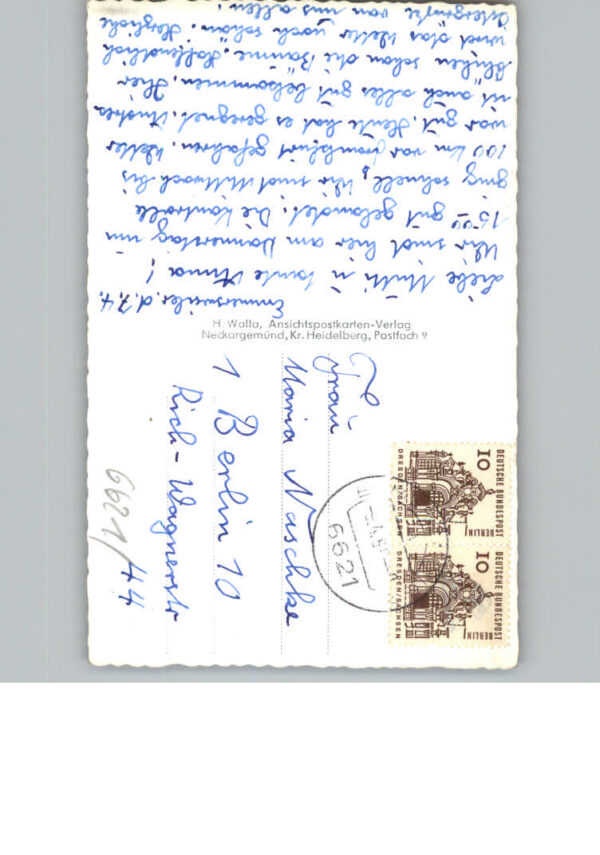 Emmersweiler, d. 7. 4.
Liebe Mutti u Tante Anna!
Wir sind hier am Donnerstag um
15 00 gut gelandet. Die Kontrolle
ging schnell. Wir sind Mittwoch bis
100 km vor Frankfurt gefahren. Wetter
war gut. Heute hat es geregnet. Andrea
ist auch alles gut bekommen. Hier
blühen schon die Bäume. Hoffentlich
wird das Wetter noch schön. Herzliche
Ostergrüße von uns allen.
H. Walta, Ansichtspostkarten-Verlag
Neckargemünd, Kr. Heidelberg, Postfach 9
Frau
Maria Naschke
1 Berlin 10
Rich-Wagnerstr
6621/44
6621
10
DEUTSCHE BUNDESPOST
BERLIN
DRESDEN/SACHSEN
10
DEUTSCHE BUNDESPOST
BERLIN
DRESDEN/SACHSEN